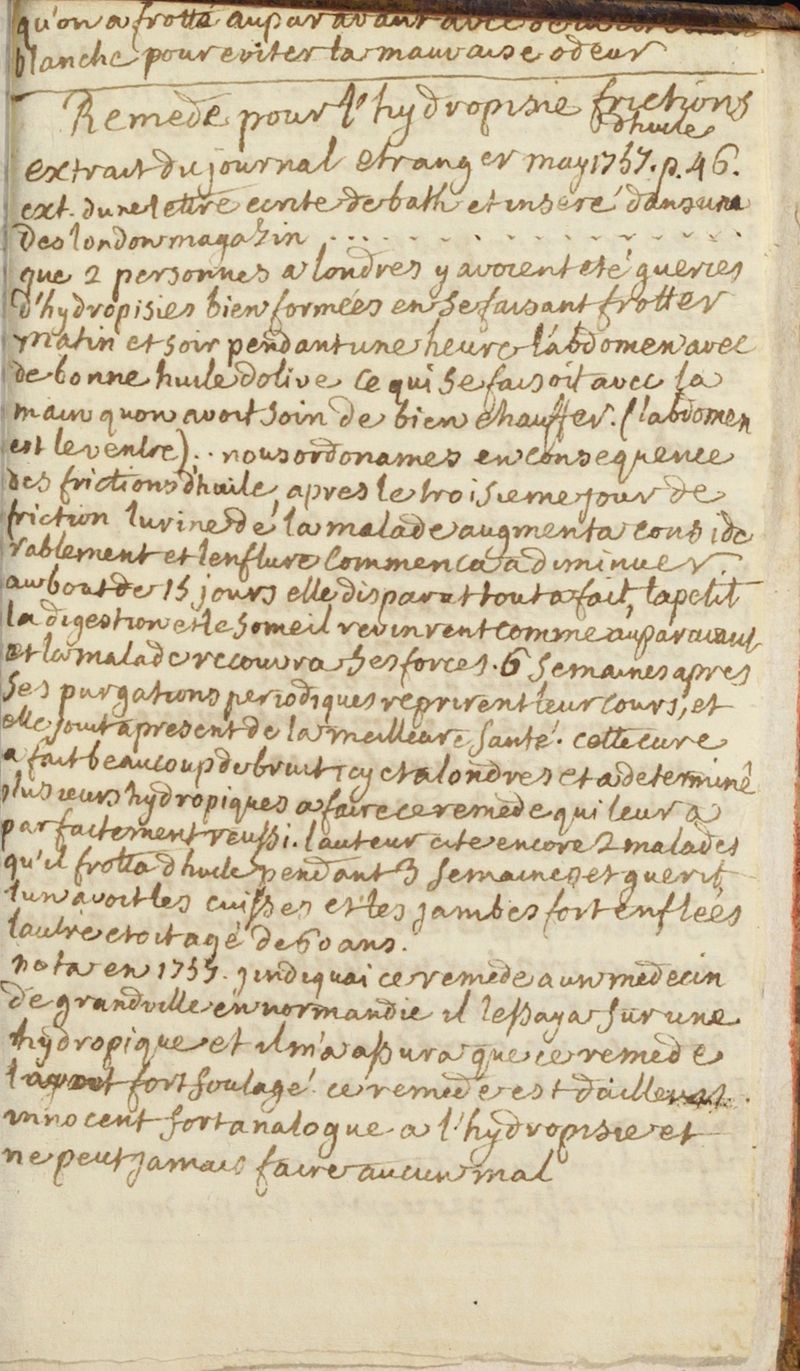 qu'on a frotté auparavant avec
blanche pour eviter la mauvaise odeur
Remede pour l'hydropisie frictions
d'huile
extrait du journal etranger may 1757. p. 46.
ext. dune lettre ecrite de bath et inseré dans une
des london magazin . . . . . . . . . . . .
que 2 personnes a londres y avoient eté gueries
d'hydropisies bien formées en se faisant frotter
matin et soir pendant une heure l'abdomen avec
de bonne huile dolive ce qui se faisoit avec la
main quon avoit soin de bien chauffer. (labdomen
est le ventre). . nous ordonames en consequence
des frictions d'huile, apres le troisieme jour de
friction lurine de la malade augmenta conside
rablement et lenflure commenca a diminuer.
au bout de 15 jours elle disparut tout a fait, lapetit
la digestion et le someil revinrent comme auparavant
et la malade recouvra ses forces. 6 semaines apres
ses purgations periodiques reprirent leur cours, et
elle jouit apresent de la meilleure santé. cette cure
a fait beaucoup de bruit icy et a londres et a determiné
plusieurs hydropiques a faire ce remede qui leur a
parfaitement reussi. lauteur cite encore 2 malades
qu'il frotta d'huile pendant 3 semaines et guerit
lun avoit les cuisses et les jambes fort enflées
lautre etoit agé de 60 ans.
nota en 1757. jindiquai ce remede a un medecin
de grandville en normandie il lessaya sur une
hydropique et il m'a assura que ce remede
lavoit fort soulagé. ce remede est dailleurs.
innocent fort analogue a l'hydropisie et
ne peut jamais faire aucun mal